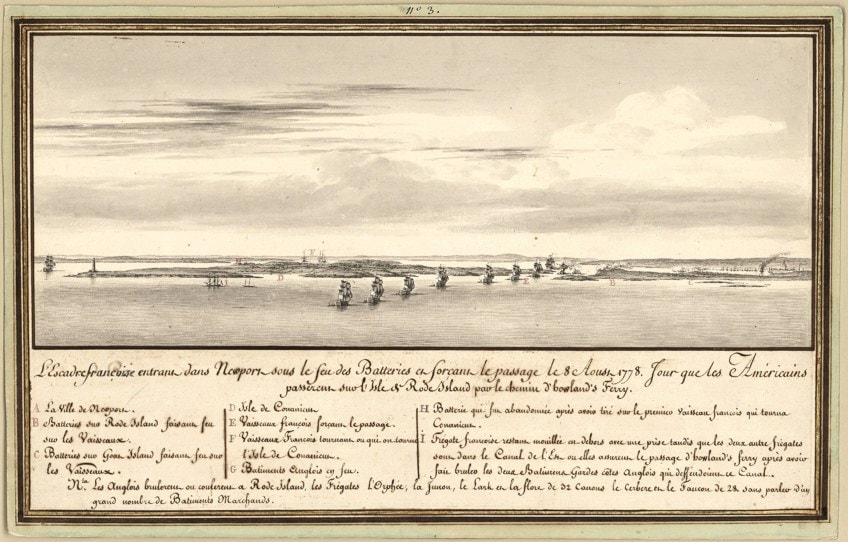 nº 3.
L'Escadre françoise entrant dans Newport sous le feu des Batteries et forçant le passage le 8 Aoust 1778. Jour que les Américains
passerent sur l'Isle de Rode Island par le chemin d'howland's Ferry.
A La Ville de Newport.
B Batteries sur Rode Island faisant feu
sur les Vaisseaux.
C Batteries sur Goat Island faisant feu sur
les Vaisseaux.
D Isle de Conanicut.
E Vaisseaux françois forçant le passage.
F Vaisseaux François tournant ou qui ont tourné
l'Isle de Conanicut.
G Batiments Anglois en feu.
H Batterie qui fut abandonnée après avoir tiré sur le premier Vaisseau françois qui tourna
Conanicut.
I Frégate françoise restant mouillée en dehors avec une prise tandis que les deux autres frégates
sont dans le Canal de l'Est ou elles assurent le passage d'howland's ferry après avoir
fait bruler les deux Batiments Gardes côtes Anglois qui deffendoient ce Canal.
Nª. Les Anglois brulerent ou coulerent a Rode Island, les Frégates l'Orphée, la Junon, le Lark et la flore de 32 Canons le Cerbere et le Faucon de 28 sans parler d'un
grand nombre de Batiments Marchands.
F
D
I
E
B